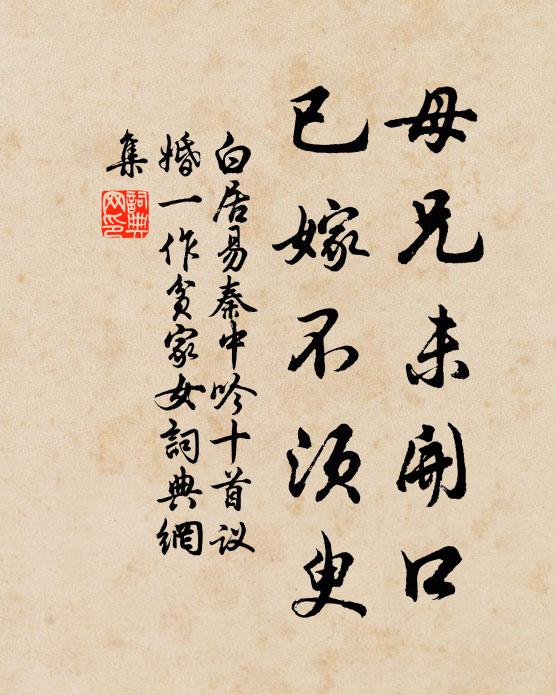 母兄未開口
已嫁不須臾
白居易秦中吟十首议
婚一作贫家女詞典網
集
詞典
网印